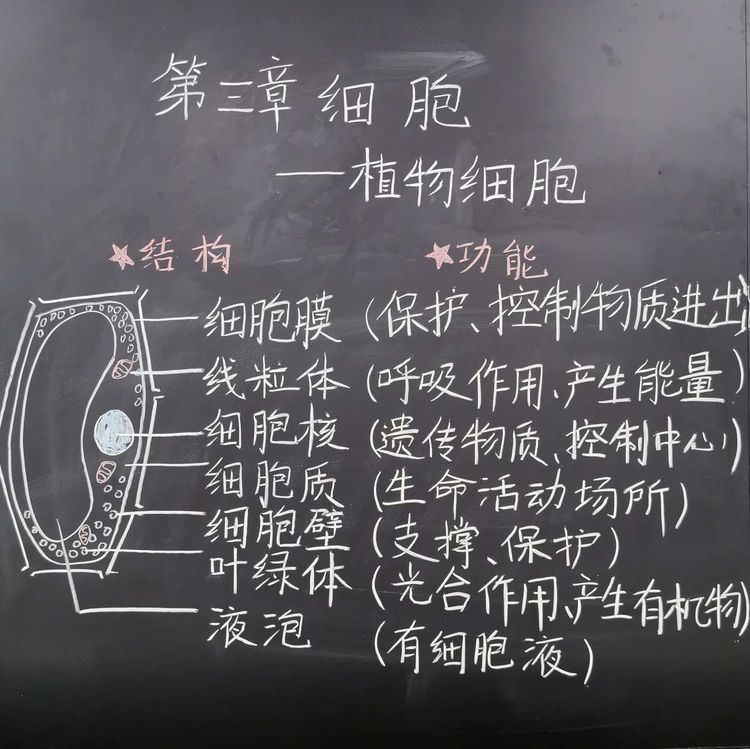 第三章 细胞
——植物细胞
★结构 ★功能
细胞膜 (保护、控制物质进出)
线粒体 (呼吸作用、产生能量)
细胞核 (遗传物质、控制中心)
细胞质 (生命活动场所)
细胞壁 (支撑、保护)
叶绿体 (光合作用、产生有机物)
液泡 (有细胞液)